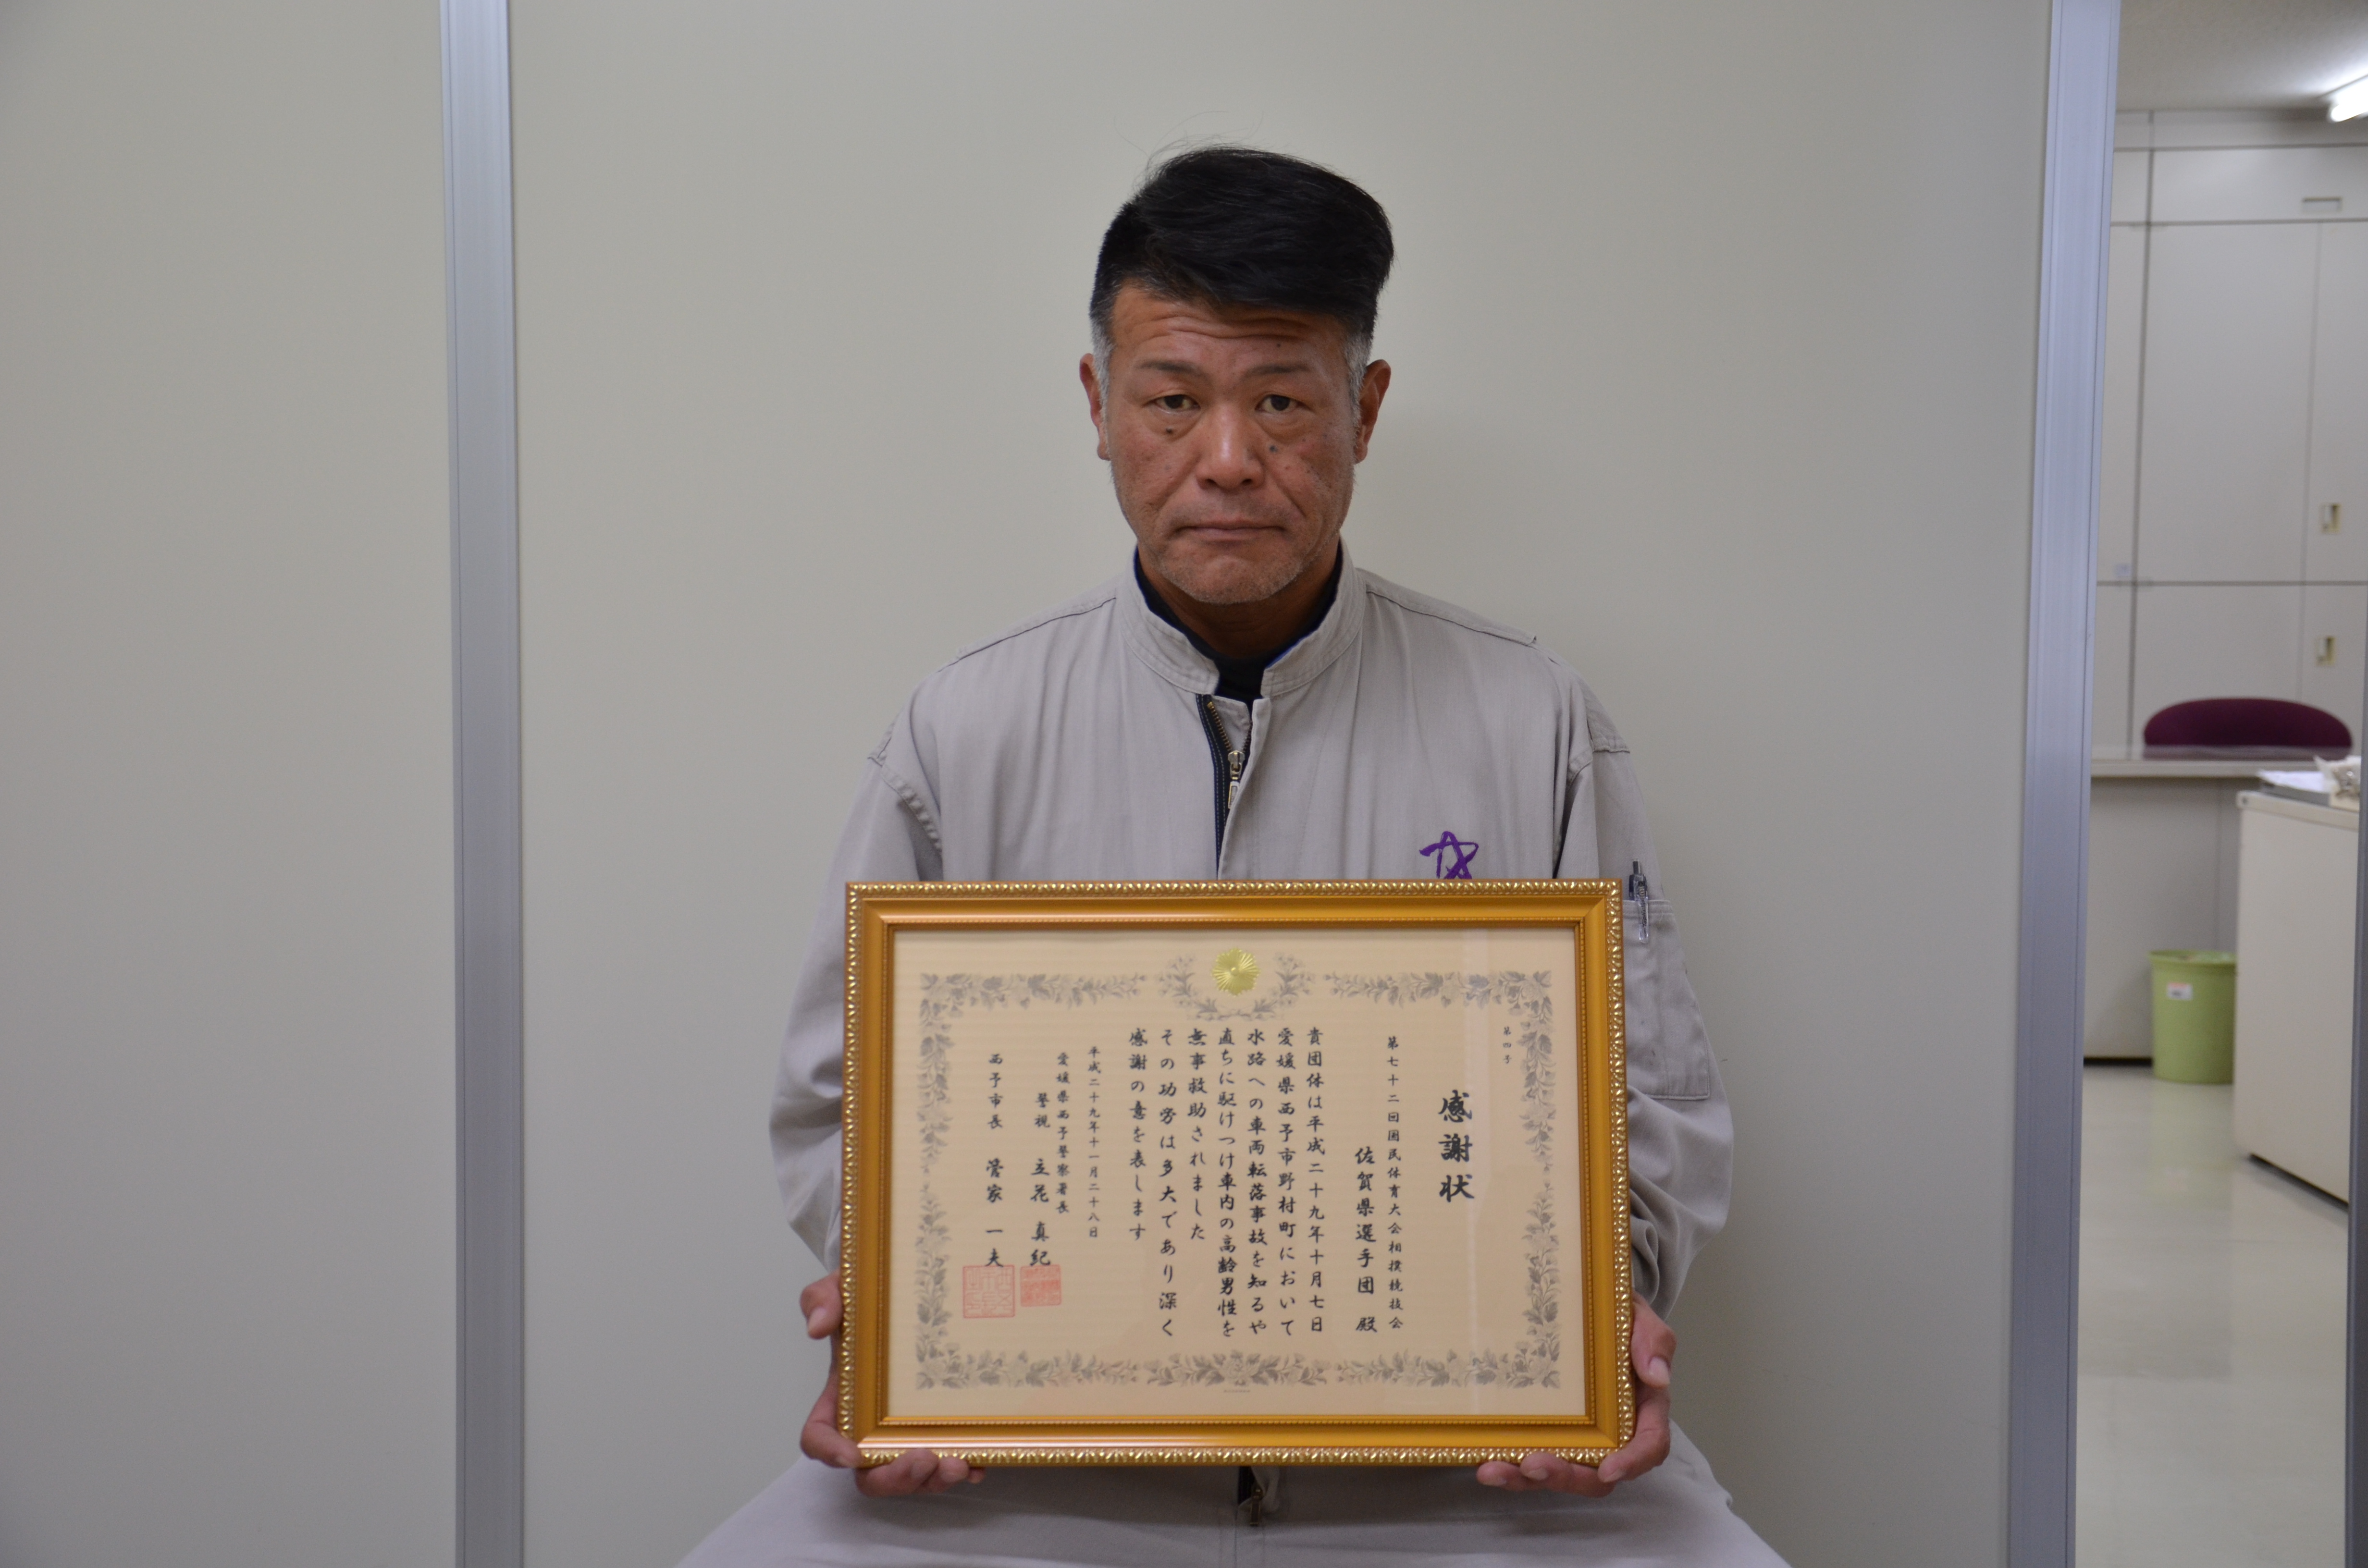 第四号
感謝状
第七十二回国民体育大会相撲競技会
佐賀県選手団 殿
貴団体は平成二十九年十月七日
愛媛県西予市野村町において
水路への車両転落事故を知るや
直ちに駆けつけ車内の高齢男性を
無事救助されました
その功労は多大であり深く
感謝の意を表します
平成二十九年十一月二十八日
愛媛県西予警察署長
警視 立花 真紀
西予市長 管家 一夫